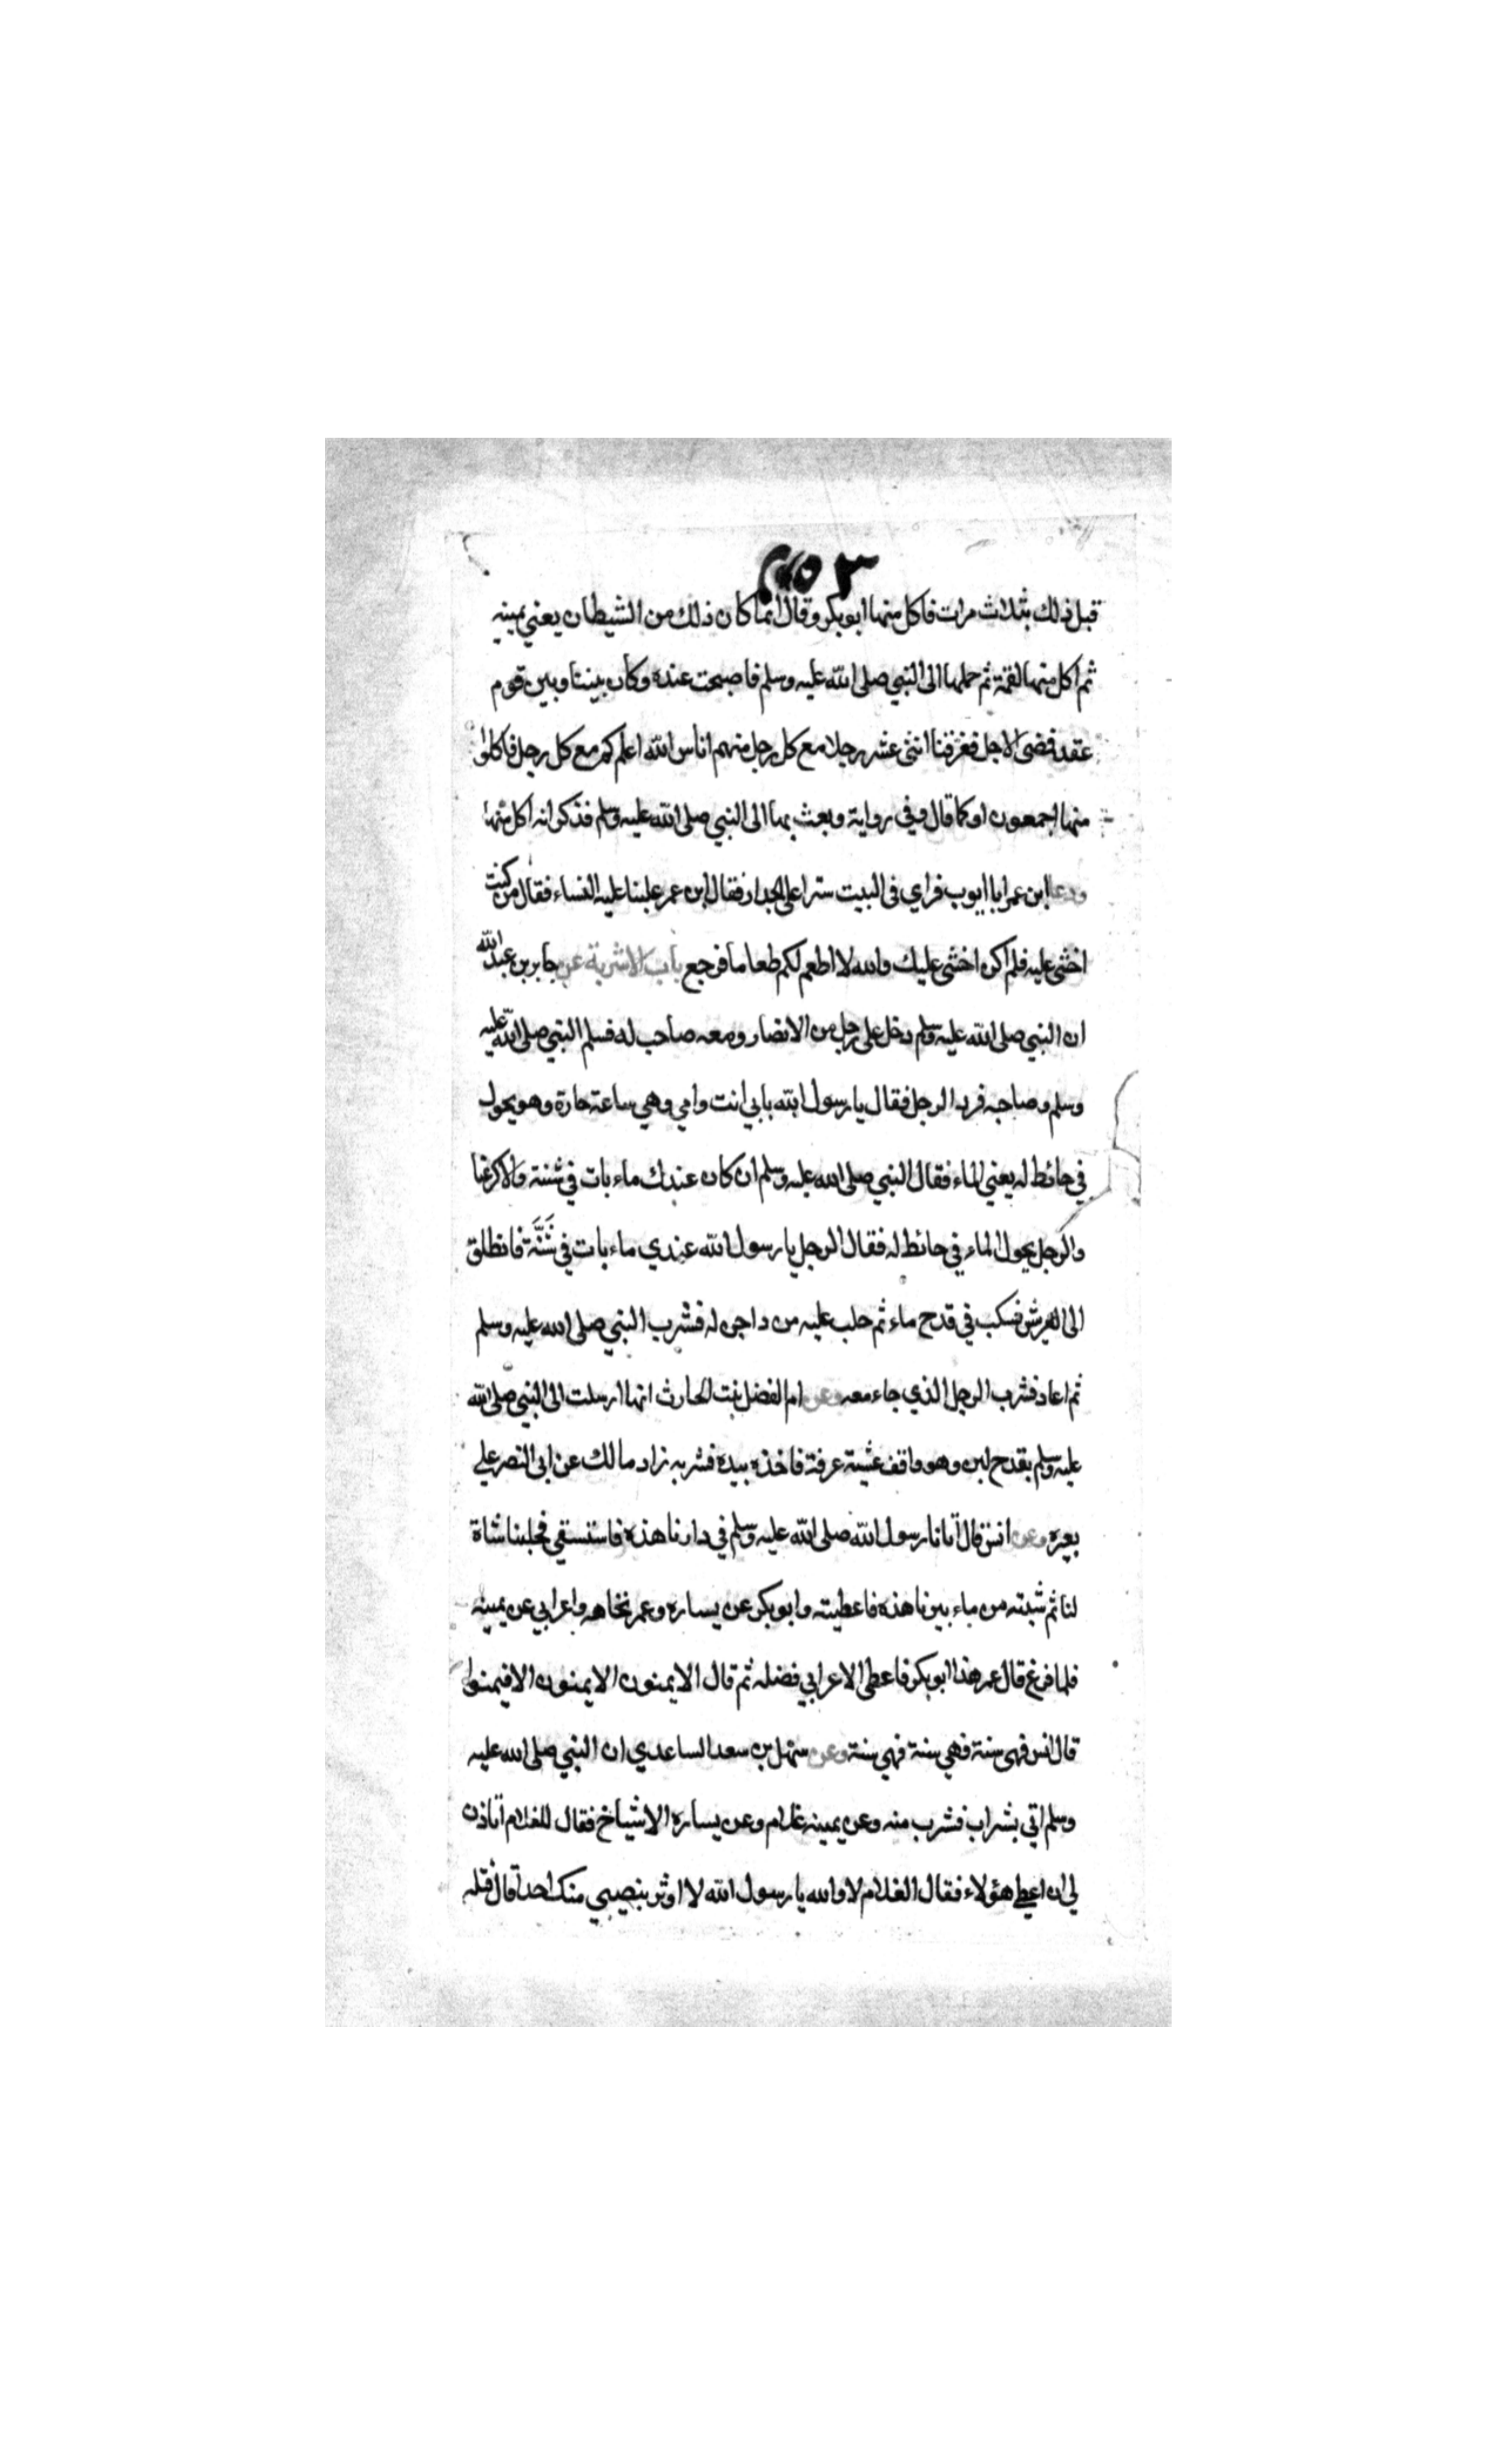 قبل ذلك بثلاث مرات فاكل منها ابو بكر وقال انما كان ذلك من الشيطان يعني يمينه
ثم اكل منها لقمة ثم حملها الى النبي صلى الله عليه وسلم فاصبحت عنده وكان بيننا وبين قوم
عقد فمضى الاجل فغرقنا اثنى عشر رجلا مع كل رجل منهم اناس الله اعلم كم مع كل رجل فاكلوا
منها اجمعون او كما قال وفي رواية وبعث بها الى النبي صلى الله عليه وسلم فذكر انه اكل منها
ودعا ابن عمر ابا ايوب فراي في البيت سترا على الجدار فقال ابن عمر غلبنا عليه النساء فقال من كنت
اخشى عليه فلم اكن اخشى عليك والله لا اطعم لكم طعاما فرجع باب الاشربة عن جابر بن عبد الله
ان النبي صلى الله عليه وسلم دخل على رجل من الانصار ومعه صاحب له فسلم النبي صلى الله عليه
وسلم وصاحبه فرد الرجل فقال يا رسول الله بابي انت وامي وهي ساعة حارة وهو يحول
في حائط له يعني الماء فقال النبي صلى الله عليه وسلم ان كان عندك ماء بات في شنة والا كرعنا
والرجل يحول الماء في حائط له فقال الرجل يا رسول الله عندي ماء بات في شَنَّة فانطلق
الى العريش فسكب في قدح ماء ثم حلب عليه من داجن له فشرب النبي صلى الله عليه وسلم
ثم اعاد فشرب الرجل الذي جاء معه وعن ام الفضل بنت الحارث انها ارسلت الى النبي صلى الله
عليه وسلم بقدح لبن وهو واقف عشية عرفة فاخذه بيده فشربه زاد مالك عن ابي النصر على
بعيره وعن انس قال اتانا رسول الله صلى الله عليه وسلم في دارنا هذه فاستسقى فحلبنا شاة
لنا ثم شبته من ماء بيرنا هذه فاعطيته وابو بكر عن يساره وعمر تجاهه واعرابي عن يمينه
فلما فرغ قال عمر هذا ابو بكر فاعطى الاعرابي فضله ثم قال الايمنون الايمنون الا فيمنوا
قال انس فهي سنة فهي سنة فهي سنة وعن سهل بن سعد الساعدي ان النبي صلى الله عليه
وسلم اتي بشراب فشرب منه وعن يمينه غلام وعن يساره الاشياخ فقال للغلام اتاذن
لي ان اعطي هؤلاء فقال الغلام لا والله يا رسول الله لا اوثر بنصيبي منك احدا قال فتله